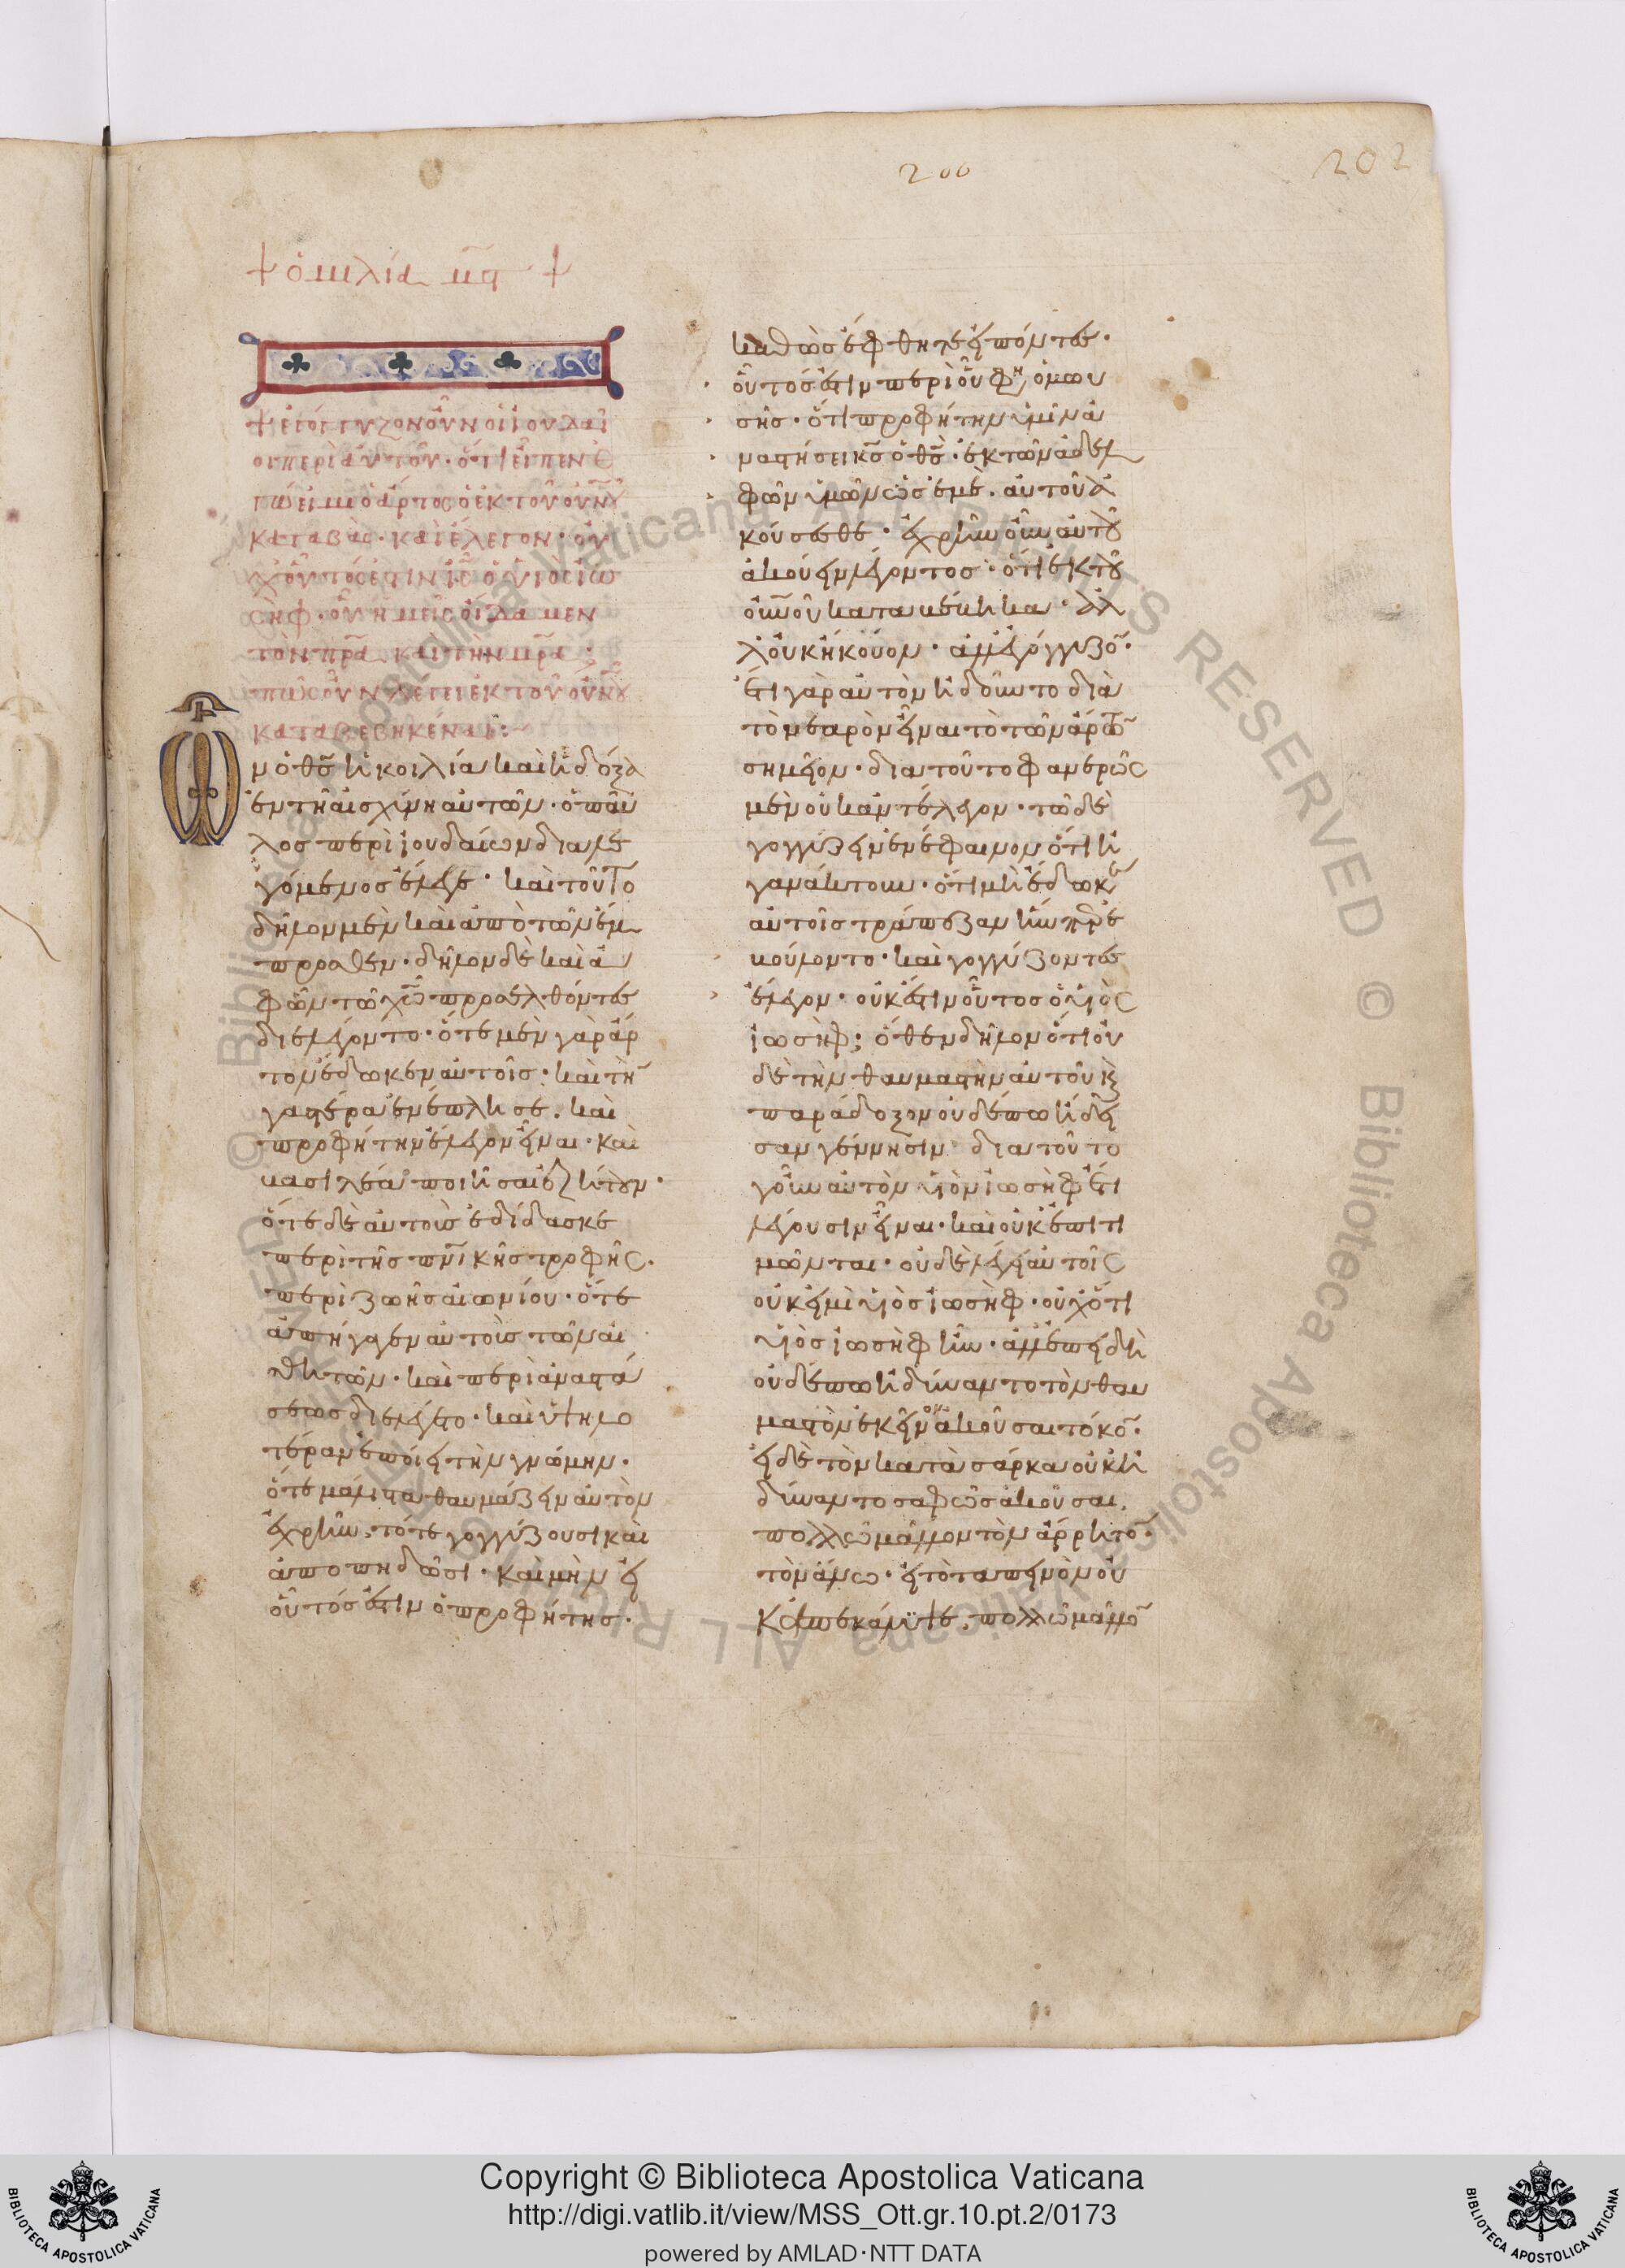 200
202
☩ ὁμιλία μ̅ϛ̅ ☩
☩ ἐγόγγυζον οὖν οἱ ἰουδαῖ
οι περὶ αὐτοῦ· ὅτι εἶπεν ἐ
γώ εἰμι ὁ ἄρτος ὁ ἐκ τοῦ οὐν̅ου
καταβάς· καὶ ἔλεγον· οὐ
χ οὗτός ἐστιν ι̅ς̅ ὁ υἱὸς ἰω
σήφ· οὗ ἡμεῖς οἴδαμεν
τὸν π̅ρ̅α̅ καὶ τὴν μ̅ρ̅α̅·
πῶς οὖν λέγει ἐκ τοῦ οὐν̅ου
καταβεβηκέναι:~
ὧν ὁ θ̅ς̅ ἡ κοιλία καὶ ἡ δόξα
ἐν τῇ αἰσχύνῃ αὐτῶν· ὁ παῦ
λος περὶ ἰουδαίων διαλε
γόμενος ἔλεγε· καὶ τοῦτο
δῆλον μὲν καὶ ἀπὸ τῶν ἔμ
προσθεν· δῆλον δὲ καὶ ἀ
φ' ὧν τῷ χ̅ω̅ προσελθόντες
διελέγοντο· ὅτε μὲν γὰρ ἄρ
τον ἔδωκεν αὐτοῖς· καὶ τὴ̅
γαστέρα ἐνέπλησε. καὶ
προφήτην ἔλεγον εἶναι· καὶ
βασιλέα ποιῆσαι ἐζήτουν·
ὅτε δὲ αὐτοὺς ἐδίδασκε
περὶ τῆς πν̅ικῆς τροφῆς.
περὶ ζωῆς αἰωνίου· ὅτε
ἀπήγαγεν αὐτοὺς τῶν αἰ
σθητῶν· καὶ περὶ ἀναστά
σεως διελέγετο· καὶ ὑψηλο
τέραν ἐποίει τὴν γνώμην·
ὅτε μάλιστα θαυμάζειν αὐτὸν
ἐχρῆν, τότε γογγύζουσι καὶ
ἀποπηδῶσι· καὶ μὴν εἰ
οὗτός ἐστιν ὁ προφήτης·
καθὼς ἔφθητε εἰπόντες·
οὗτός ἐστιν περὶ οὗ ἔφη ὁ μωυ
σῆς· ὅτι προφήτην ὑμῖν ἀ
ναστήσει κ̅ς̅ ὁ θ̅ς̅· ἐκ τῶν ἀδελ
φῶν ὑμῶν ὡς ἐμέ. αὐτοῦ ἀ
κούσεσθε· ἐχρῆν οὖν αὐτοῦ
ἀκούειν λέγοντος· ὅτι ἐκ τοῦ
οὐν̅οῦ καταβέβηκα· ἀλ
λ' οὐκ ἤκουον· ἀλλ' ἐγόγγυζο̅·
ἔτι γὰρ αὐτὸν ᾐδοῦντο διὰ
τὸ νεαρὸν εἶναι τὸ τῶν ἄρτω̅
σημεῖον· διὰ τοῦτο φανερῶς
μὲν οὐκ ἀντέλεγον· τῷ δὲ
γογγύζειν ἐνέφαινον ὅτι ἠ
γανάκτουν· ὅτι μὴ ἔδωκεν
αὐτοῖς τράπεζαν ἣν πρ ἐ
βούλοντο· καὶ γογγύζοντες
ἔλεγον· οὐκ ἔστιν οὗτος ὁ υἱὸς
ἰωσήφ; ὅθεν δῆλον ὅτι οὐ
δὲ τὴν θαυμαστὴν αὐτοῦ κ(αὶ)
παράδοξον οὐδέπω ᾔδει
σαν γέννησιν· διὰ τοῦτο
γοῦν αὐτὸν υἱὸν ἰωσὴφ ἔτι
λέγουσιν εἶναι· καὶ οὐκ ἐπιτι
μῶνται· οὐδὲ λέγει αὐτοῖς
οὐκ εἰμὶ υἱὸς ἰωσήφ· οὐχ ὅτι
υἱὸς ἰωσὴφ ἦν· ἀλλ' ἐπειδὴ
οὐδέπω ἠδύναντο τὸν θαυ
μαστὸν ἐκεῖνον ἀκοῦσαι τόκο̅·
εἰ δὲ τὸν κατὰ σάρκα οὐκ ἠ
δύναντο σαφῶς ἀκοῦσαι,
πολλῷ μᾶλλον τὸν ἄρρητο̅
τὸν ἄνω· εἰ τὸ ταπεινὸν οὐ
κ ἀπεκάλυψε, πολλῷ μᾶλλο̅
Copyright © Biblioteca Apostolica Vaticana
http://digi.vatlib.it/view/MSS_Ott.gr.10.pt.2/0173
powered by AMLAD·NTT DATA